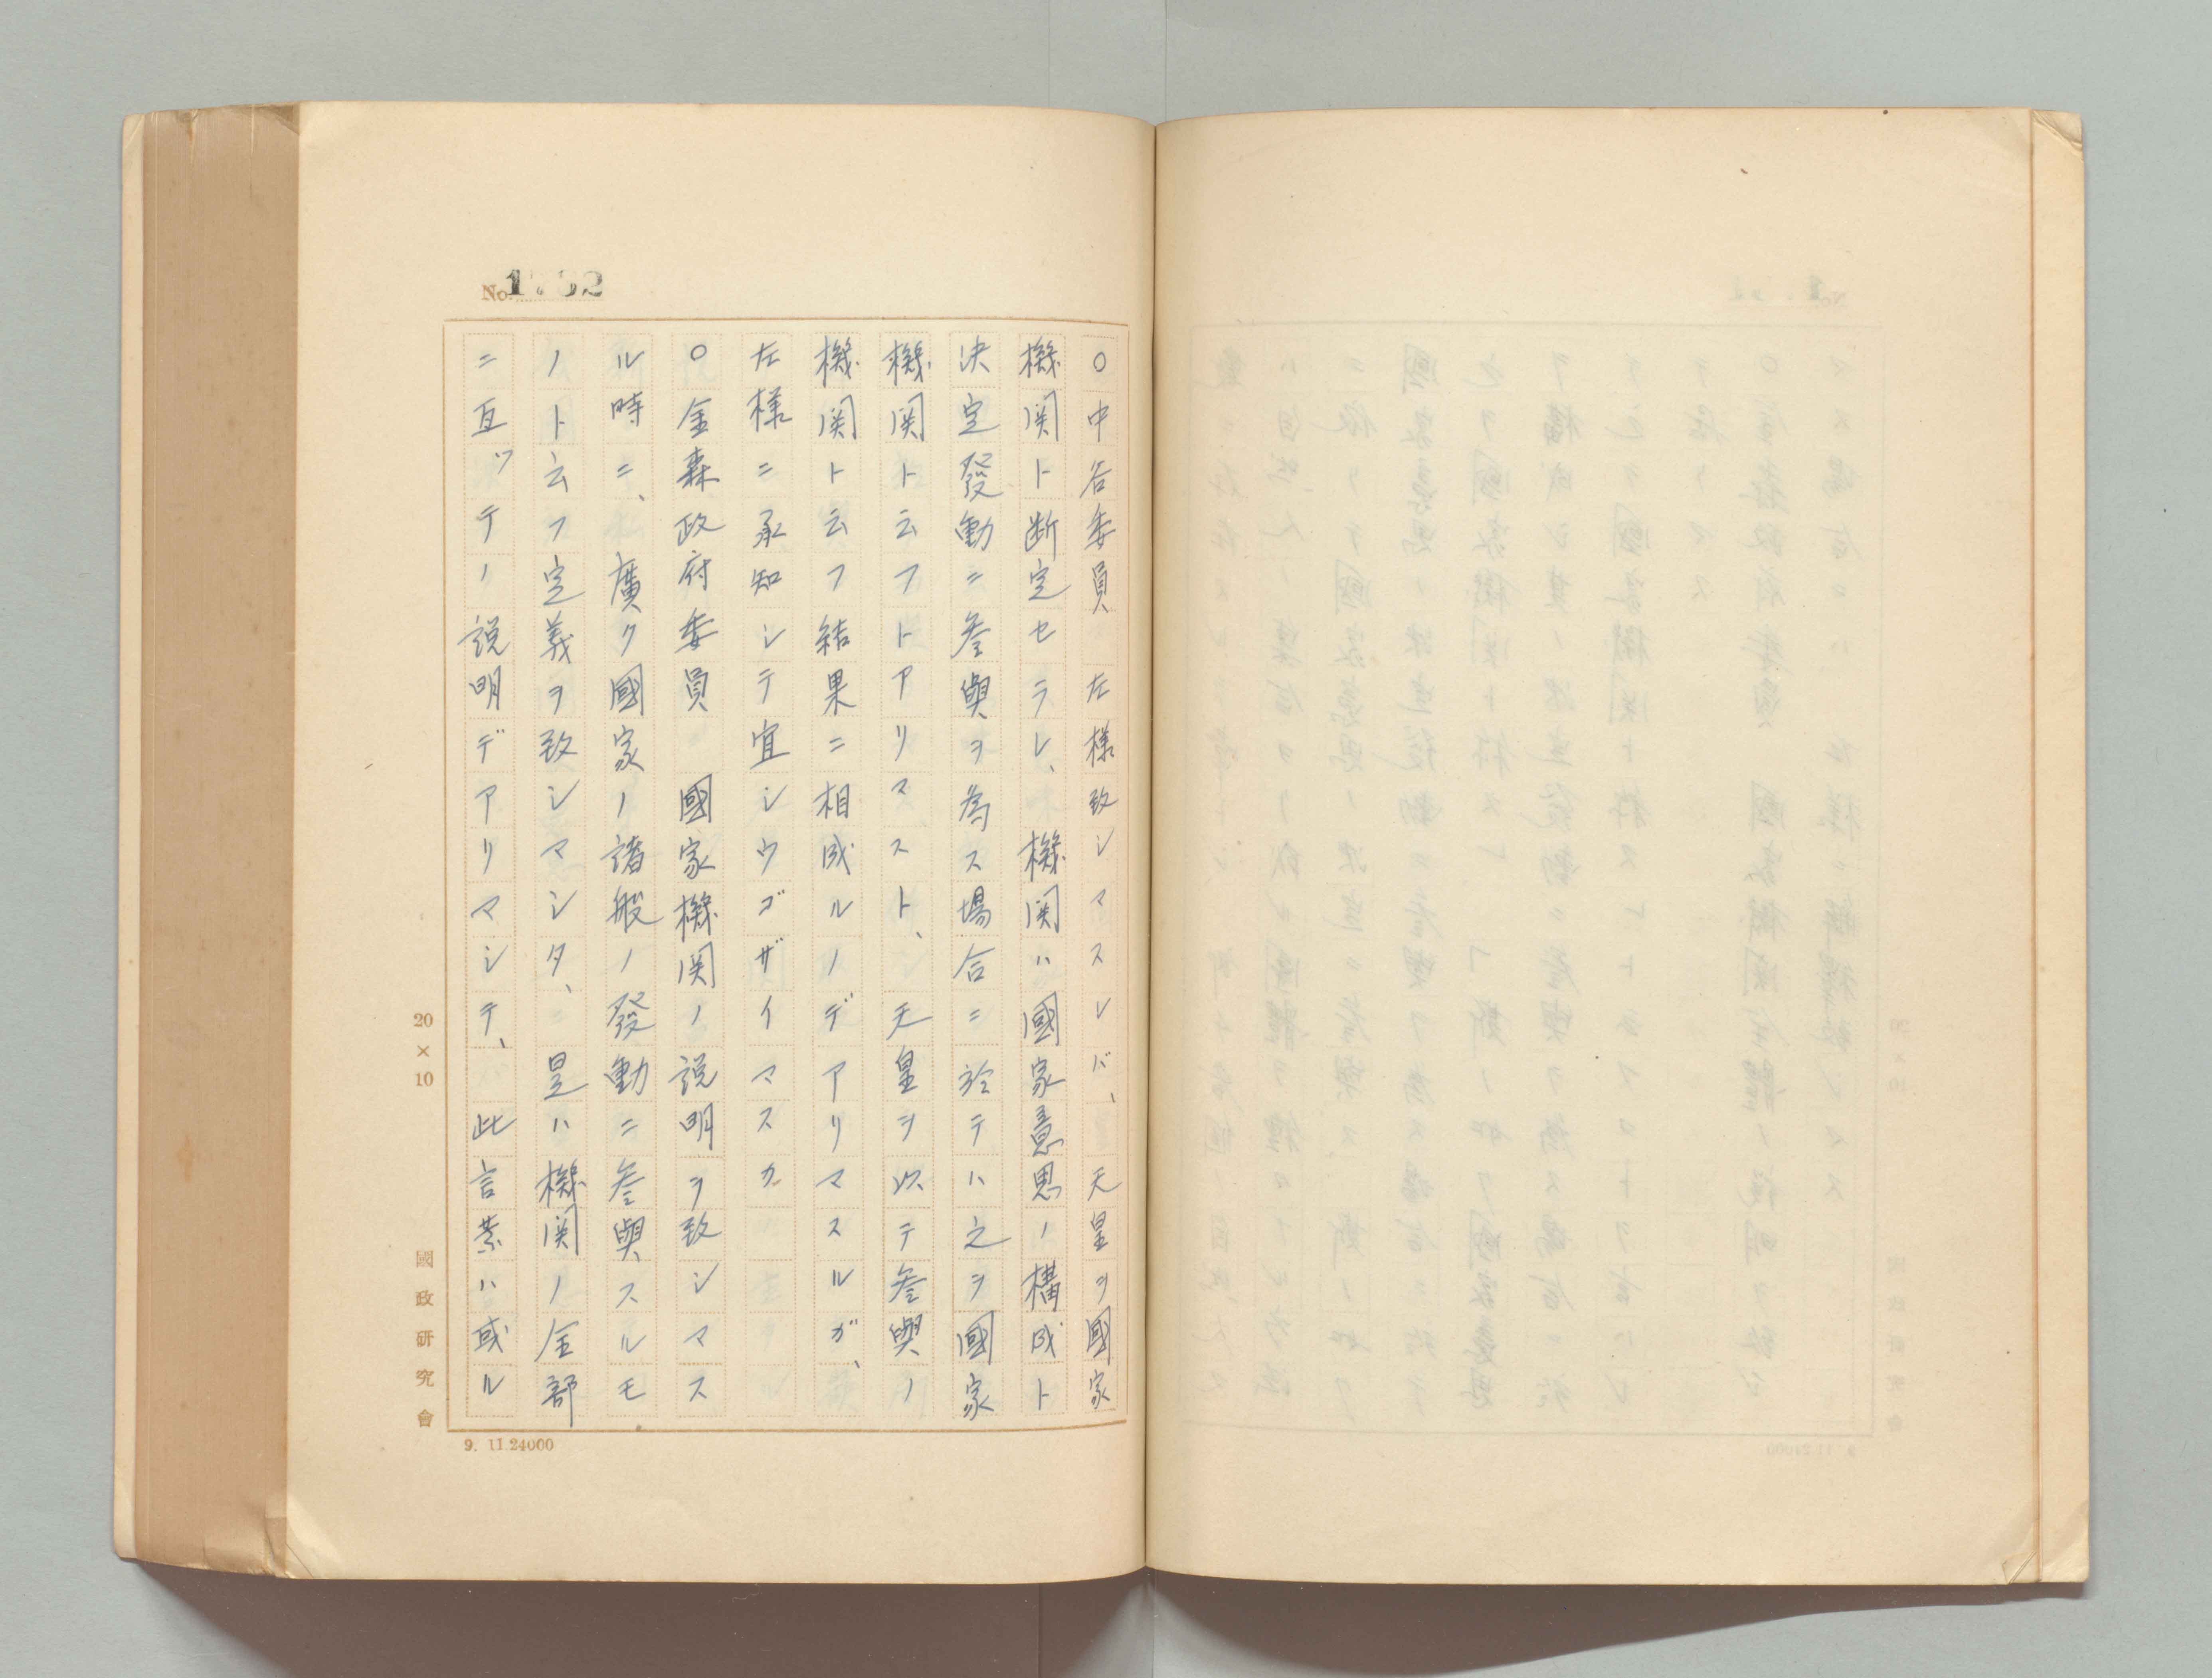 ○中谷委員　左様致シマスレバ、天皇ヲ國家
機関ト断定セラレ、機関ハ國家意思ノ構成ト
決定發動ニ参與ヲ為ス場合ニ於テハ之ヲ國家
機関ト云フトアリマスト、天皇ヲ以テ参與ノ
機関ト云フ結果ニ相成ルノデアリマスルガ、
左様ニ承知シテ宜シウゴザイマスカ
○金森政府委員　國家機関ノ説明ヲ致シマス
ル時ニ、廣ク國家ノ諸般ノ發動ニ参與スルモ
ノト云フ定義ヲ致シマシタ、是ハ機関ノ全部
ニ亙ツテノ説明デアリマシテ、此言葉ハ或ル
No.
20×10
國政研究會
9. 11.24000